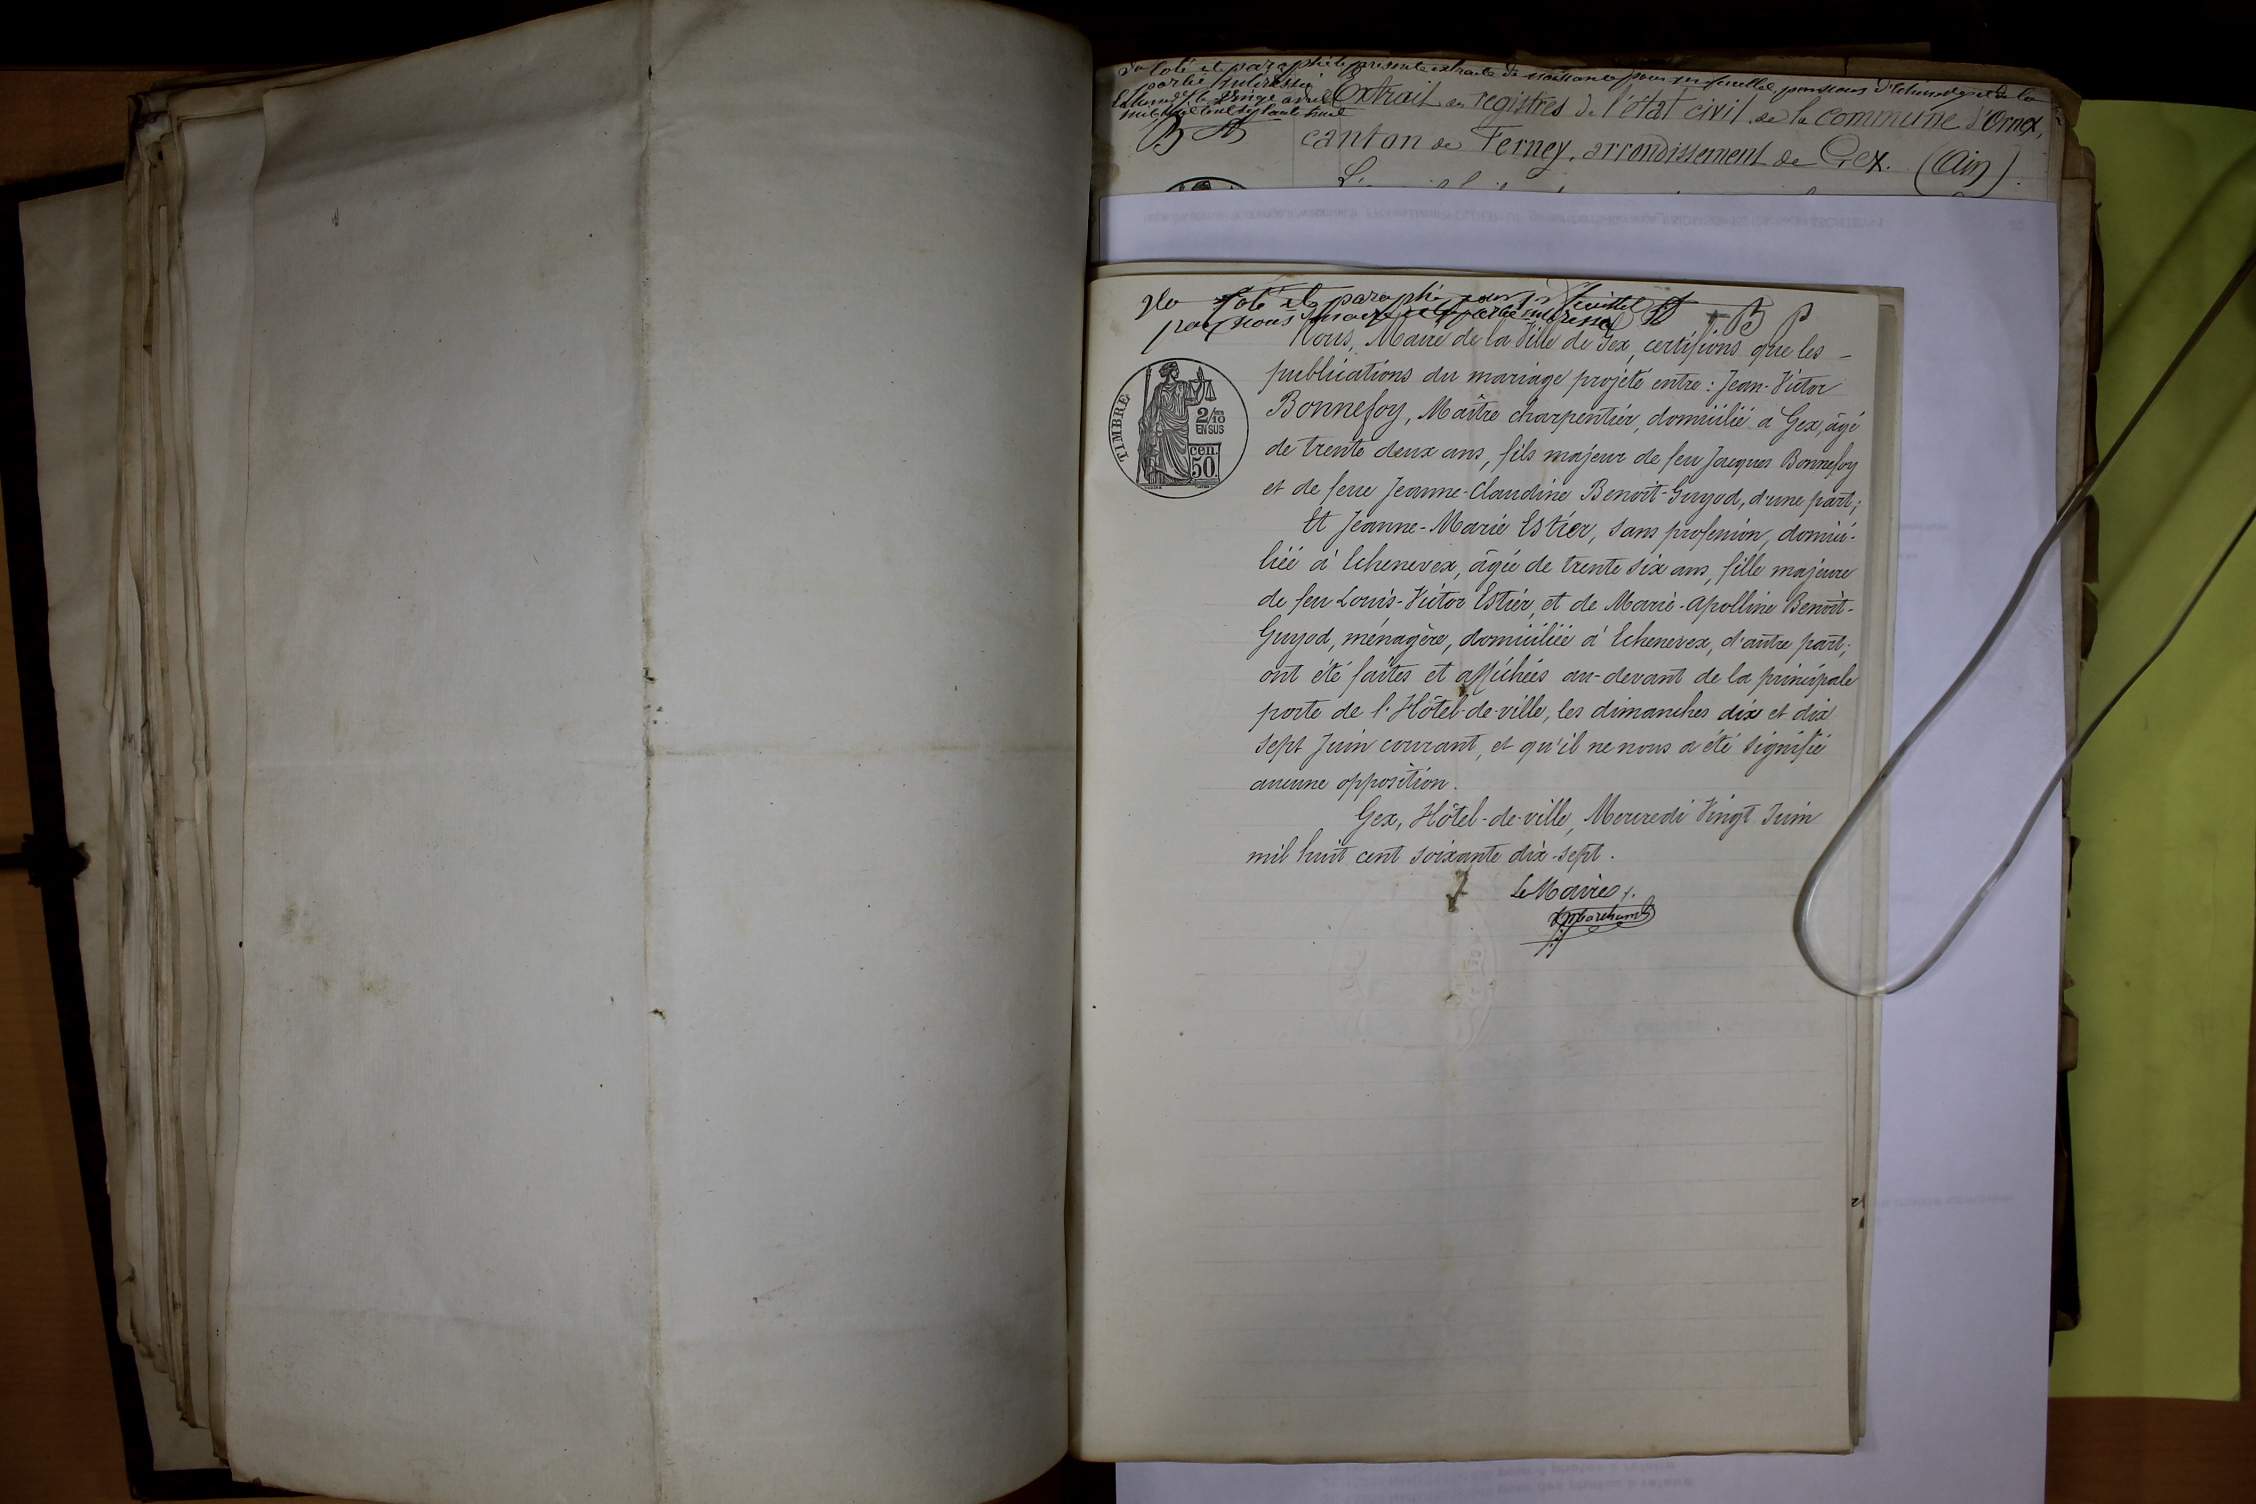 Coté et paraphé le présente extraits de naissance pour
partie intéressée
mil huit cent septante huit
Extrait des registres de l'état civil de la commune d'Ornex,
canton de Ferney, arrondissement de Gex. (Ain).
Coté et paraphé pour
par nous partie intéressée B P
Nous, Maire de la Ville de Gex, certifions que les
publications du mariage projeté entre : Jean-Victor
Bonnefoy, Maître charpentier, domicilié à Gex, âgé
de trente deux ans, fils majeur de feu Jacques Bonnefoy
et de feue Jeanne-Claudine Benoît-Guyod, d'une part;
Et Jeanne-Marie Estier, sans profession, domici-
liée à Echenevex, âgée de trente six ans, fille majeure
de feu Louis-Victor Estier, et de Marie-Apolline Benoît-
Guyod, ménagère, domiciliée à Echenevex, d'autre part;
ont été faites et affichées au-devant de la principale
porte de l'Hôtel-de-ville, les dimanches dix et dix
sept Juin courant, et qu'il ne nous a été signifié
aucune opposition.
Gex, Hôtel-de-ville, Mercredi Vingt Juin
mil huit cent soixante dix-sept.
Le Maire
TIMBRE
2/10
EN SUS
cen.
50.